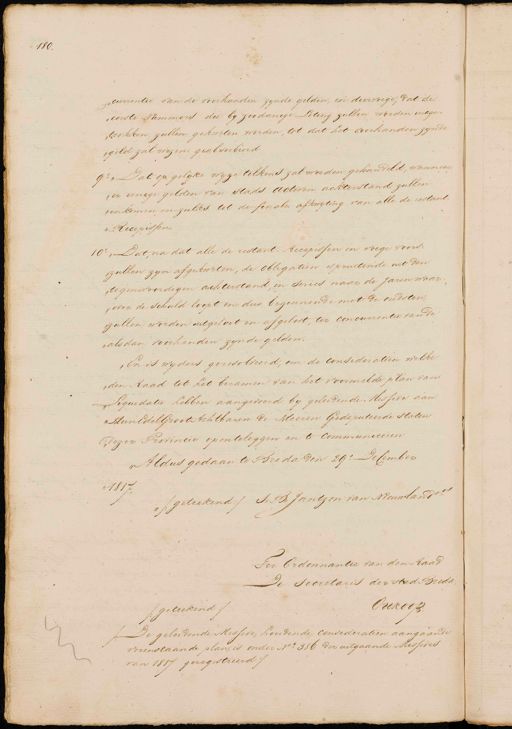 180.
currentie van de voorhanden zynde gelden, en derwyze, dat de
eerste nummers die by zoodanige Loting zullen worden uitge-
trokken zullen gekozen worden, tot dat het voorhanden zynde
geld zal wezen geabsorbeerd
9° Dat op gelyke wyze telkens zal worden gehandeld, wanneer
er eenige gelden van stads Actieven achterstand zullen
inkomen en zulks tot de finale aflossing van alle de restant
Recepissen.
10° Dat, na dat alle de restant Recepissen in voege voors.
zullen zyn afgelost, de Obligatien spruitende uit den
tegenwoordigen achterstand, in series naar de jaren waar
over de schuld loopt en dus beginnende met de oudsten,
zullen worden uitgeloot en afgelost, ter concurrentie van de
alsdan voorhanden zynde gelden.
En is wyders geresolveerd, om de consideratien welke
den Raad tot het beramen van het voormelde plan van
Liquidatie hebben aangevoerd by geleidende Missive aan
Hun EdelGroot Achtbaren de Heeren Gedeputeerde Staten
dezer Provintie open te leggen en te communiceren
Aldus gedaan te Breda den 29° December
1817.
/geteekend/ S. D. Jantzon van Nieuwland
Ter Ordonnantie van den Raad
De Secretaris der stad Breda
/geteekend/
/De geleidende Missive, houdende consideratien aangaande
vorenstaande plan, is onder N° 356 der uitgaande Missives
van 1817 geregistreerd/